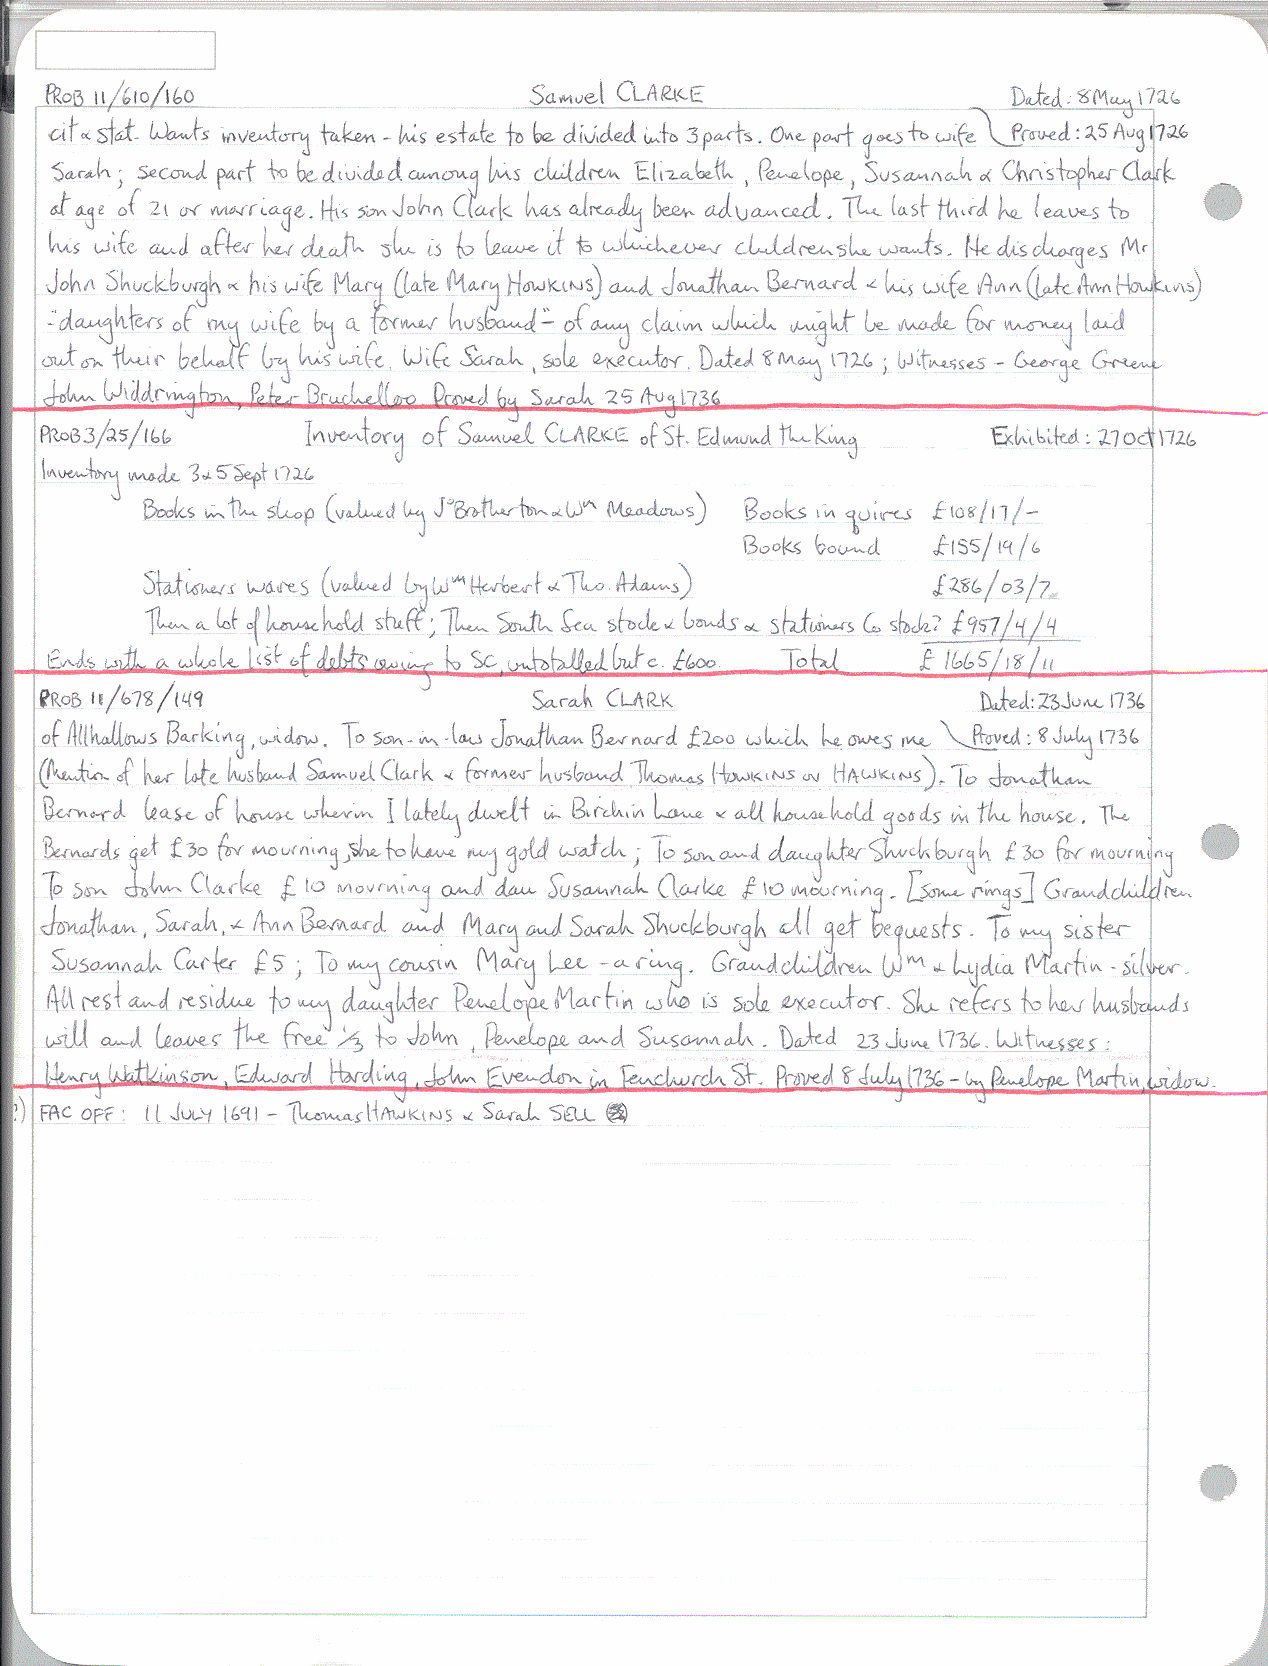 PROB 11/610/160 Samuel CLARKE Dated: 8 May 1726
cit & stat. Wants inventory taken - his estate to be divided into 3 parts. One part goes to wife \ Proved: 25 Aug 1726
Sarah; second part to be divided among his children Elizabeth, Penelope, Susannah & Christopher Clark
at age of 21 or marriage. His son John Clark has already been advanced. The last third he leaves to
his wife and after her death she is to leave it to whichever children she wants. He discharges Mr
John Shuckburgh & his wife Mary (late Mary HOWKINS) and Jonathan Bernard & his wife Ann (late Ann Howkins)
-"daughters of my wife by a former husband"- of any claim which might be made for money laid
out on their behalf by his wife. Wife Sarah, sole executor. Dated 8 May 1726; Witnesses - George Greene
John Widdrington, Peter Bruchelloo Proved by Sarah 25 Aug 1736
PROB 3/25/166 Inventory of Samuel CLARKE of St. Edmund the King Exhibited: 27 Oct 1726
Inventory made 3 & 5 Sept 1726
Books in the shop (valued by Jo Brotherton & Wm Meadows) Books in quires £108/17/-
Books bound £155/19/6
Stationers wares (valued by Wm Herbert & Tho. Adams) £286/03/7
Then a lot of household stuff; Then South Sea stock & bonds & stationers Co stock? £957/4/4
Ends with a whole list of debts owing to SC, untotalled but c. £600. Total £1665/18/11
PROB 11/678/149 Sarah CLARK Dated: 23 June 1736
of Allhallows Barking, widow. To son-in-law Jonathan Bernard £200 which he owes me \ Proved: 8 July 1736
(Mention of her late husband Samuel Clark & former husband Thomas HOWKINS or HAWKINS). To Jonathan
Bernard lease of house wherin I lately dwelt in Birchin Lane & all household goods in the house. The
Bernards get £30 for mourning, she to have my gold watch; To son and daughter Shuckburgh £30 for mourning
To son John Clarke £10 mourning and dau Susannah Clarke £10 mourning. [some rings] Grandchildren
Jonathan, Sarah, & Ann Bernard and Mary and Sarah Shuckburgh all get bequests. To my sister
Susannah Carter £5; To my cousin Mary Lee - a ring. Grandchildren Wm & Lydia Martin - silver.
All rest and residue to my daughter Penelope Martin who is sole executor. She refers to her husbands
will and leaves the free 1/3 to John, Penelope and Susannah. Dated 23 June 1736. Witnesses:
Henry Watkinson, Edward Harding, John Evendon in Fenchurch St. Proved 8 July 1736 - by Penelope Martin, widow.
?) FAC OFF: 11 JULY 1691 - Thomas HAWKINS & Sarah SELL